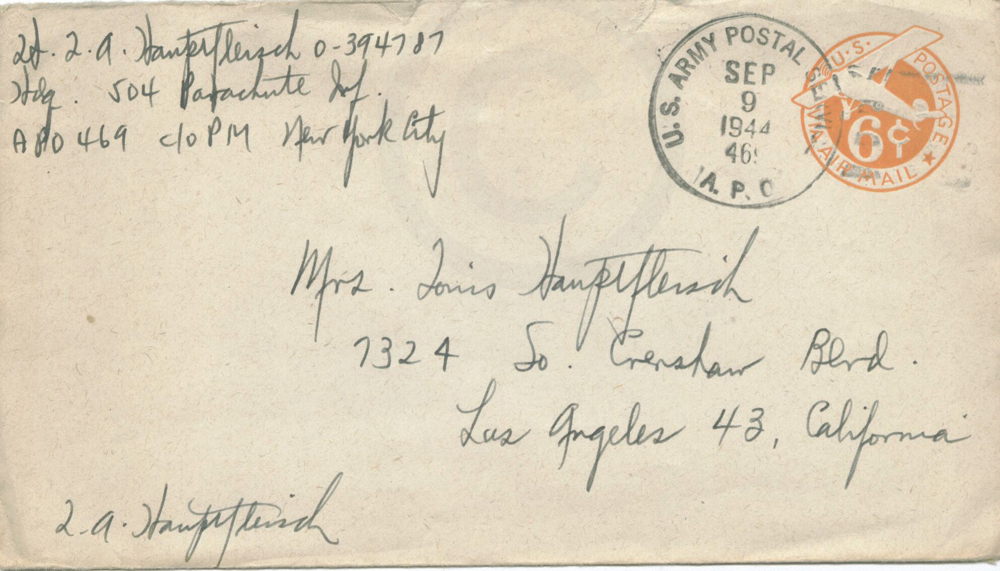 Lt. L. A. Hauptfleisch O-394787
Hdq. 504 Parachute Inf.
APO 469 c/o PM New York City
U.S. ARMY POSTAL
SEP
9
1944
469
A.P.O
U.S. POSTAGE
6¢
VIA AIR MAIL
Mrs. Louis Hauptfleisch
7324 So. Crenshaw Blvd.
Los Angeles 43, California
L. A. Hauptfleisch